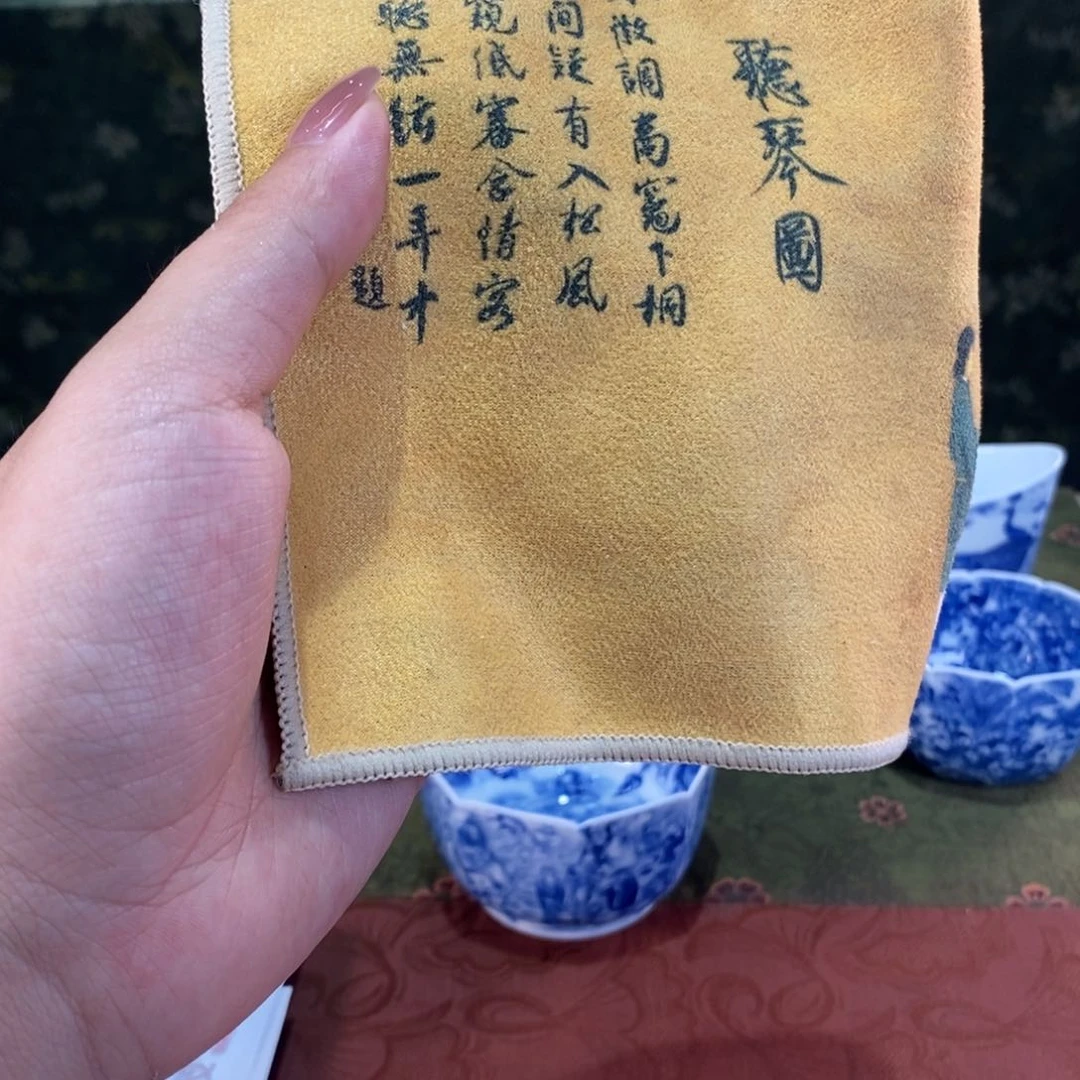 聽琴圖
徵調商竈下桐
間疑有入松風
窺低審含情客
聽無絃一弄中
題